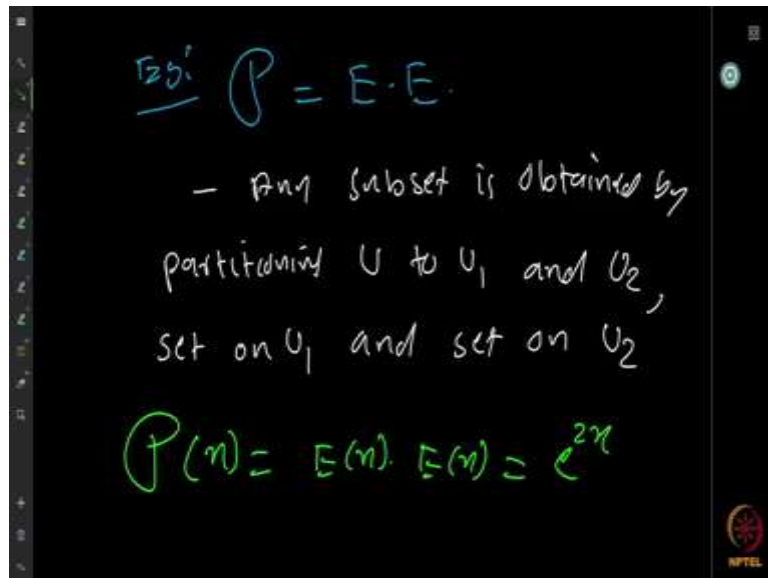 Eg: P = E·E.
- Any subset is obtained by
partitioning U to U₁ and U₂,
set on U₁ and set on U₂
P(x) = E(x). E(x) = e²ˣ
NPTEL